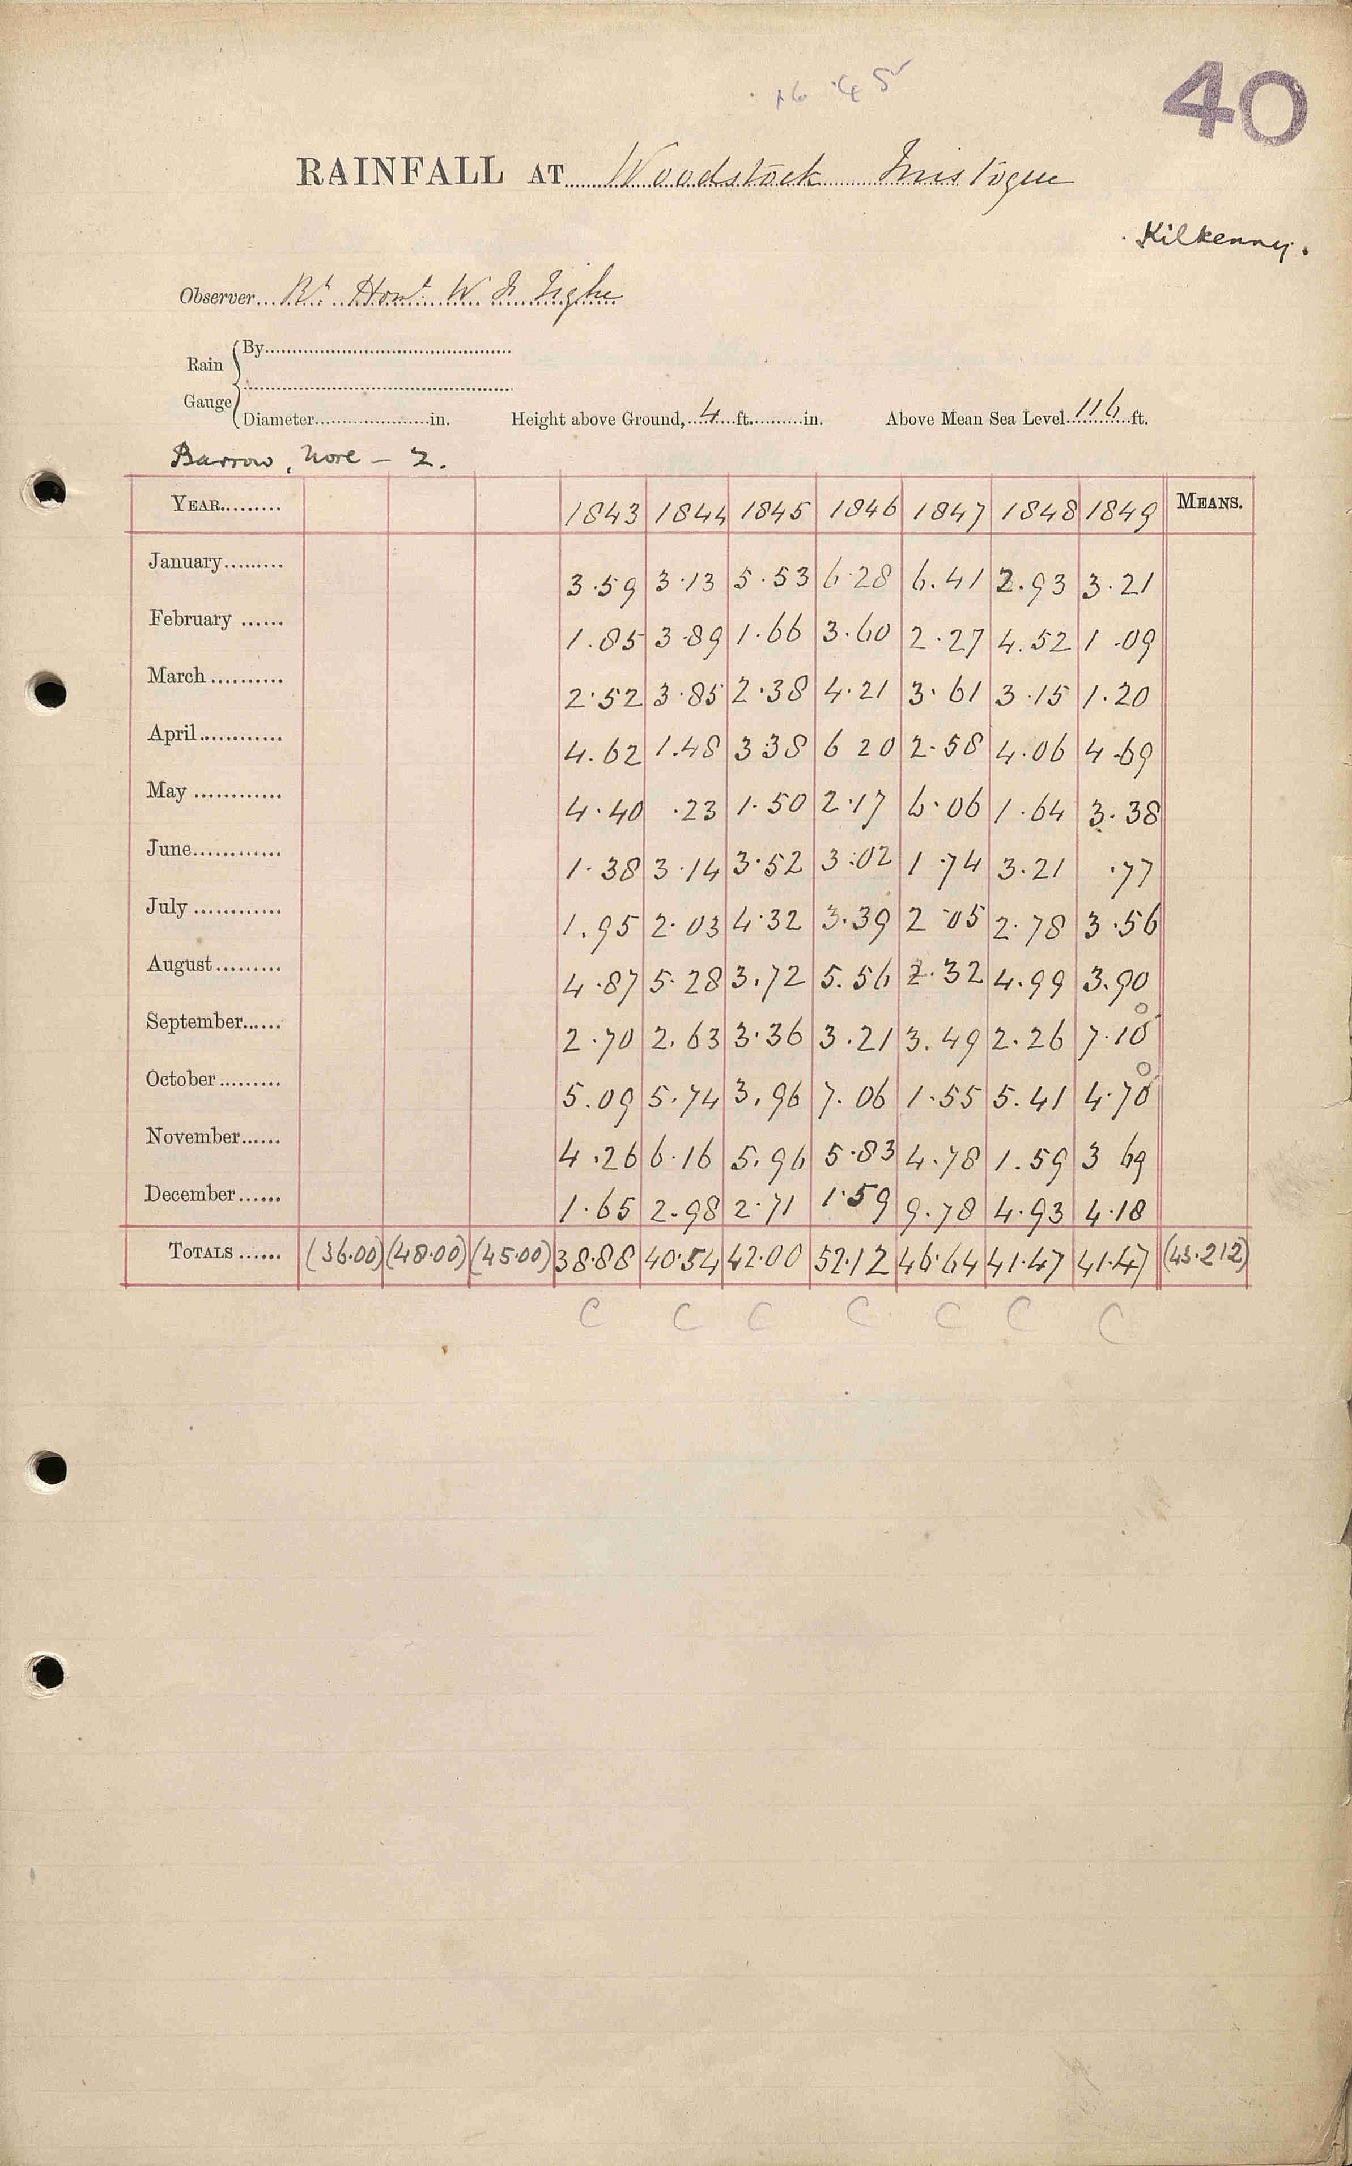 16.45
40
RAINFALL AT Woodstock Inistogue
Kilkenny.
Observer Rt Honl W F Tighe
Rain Gauge { By
Diameter in. Height above Ground, 4 ft. in. Above Mean Sea Level 116 ft.
Barrow, Nore - 2.
YEAR 1843 1844 1845 1846 1847 1848 1849 MEANS.
January 3.59 3.13 5.53 6.28 6.41 2.93 3.21
February 1.85 3.89 1.66 3.60 2.27 4.52 1.09
March 2.52 3.85 2.38 4.21 3.61 3.15 1.20
April 4.62 1.48 3.38 6 20 2.58 4.06 4.69
May 4.40 .23 1.50 2.17 6.06 1.64 3.38
June 1.38 3.14 3.52 3.02 1.74 3.21 .77
July 1.95 2.03 4.32 3.39 2.05 2.78 3.56
August 4.87 5.28 3.72 5.56 2.32 4.99 3.90
September 2.70 2.63 3.36 3.21 3.49 2.26 7.10
October 5.09 5.74 3.96 7.06 1.55 5.41 4.70
November 4.26 6.16 5.96 5.83 4.78 1.59 3 69
December 1.65 2.98 2.71 1.59 9.78 4.93 4.18
TOTALS (36.00) (48.00) (45.00) 38.88 40.54 42.00 52.12 46.64 41.47 41.47 (43.212)
C C C C C C C